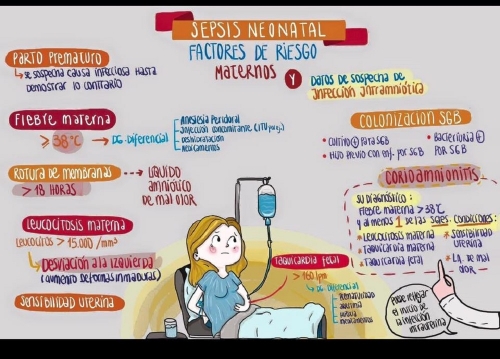 SEPSIS NEONATAL
FACTORES DE RIESGO
MATERNOS Y
DATOS DE SOSPECHA DE
INFECCIÓN INTRAMNIÓTICA
PARTO PREMATURO
SE SOSPECHA CAUSA INFECCIOSA HASTA
DEMOSTRAR LO CONTRARIO
FIEBRE MATERNA
≥ 38°C
DG. DIFERENCIAL
ANALGESIA PERIDURAL
INFECCIÓN CONCOMITANTE (ITU p.ej.)
DESHIDRATACIÓN
MEDICAMENTOS
ROTURA DE MEMBRANAS
> 18 HORAS
LÍQUIDO
AMNIÓTICO
DE MAL OLOR
LEUCOCITOSIS MATERNA
LEUCOCITOS > 15.000 /mm³
DESVIACIÓN A LA IZQUIERDA
(AUMENTO DE FORMAS INMADURAS)
SENSIBILIDAD UTERINA
TAQUICARDIA FETAL
> 160 lpm
DG. DIFERENCIAL
PREMATURIDAD
ARRITMIA
HIPOXIA
MEDICAMENTOS
COLONIZACIÓN SGB
• CULTIVO + PARA SGB
• BACTERIURIA +
POR SGB
• HIJO PREVIO CON ENF. POR SGB
CORIOAMNIONITIS
SU DIAGNÓSTICO:
FIEBRE MATERNA > 38°C
Y AL MENOS 1 DE LAS SGTES. CONDICIONES:
* LEUCOCITOSIS MATERNA
* TAQUICARDIA MATERNA
* TAQUICARDIA FETAL
* SENSIBILIDAD
UTERINA
* L.A. DE MAL
OLOR
PUEDE REFLEJAR
EL INICIO DE
LA INFECCIÓN
INTRAUTERINA